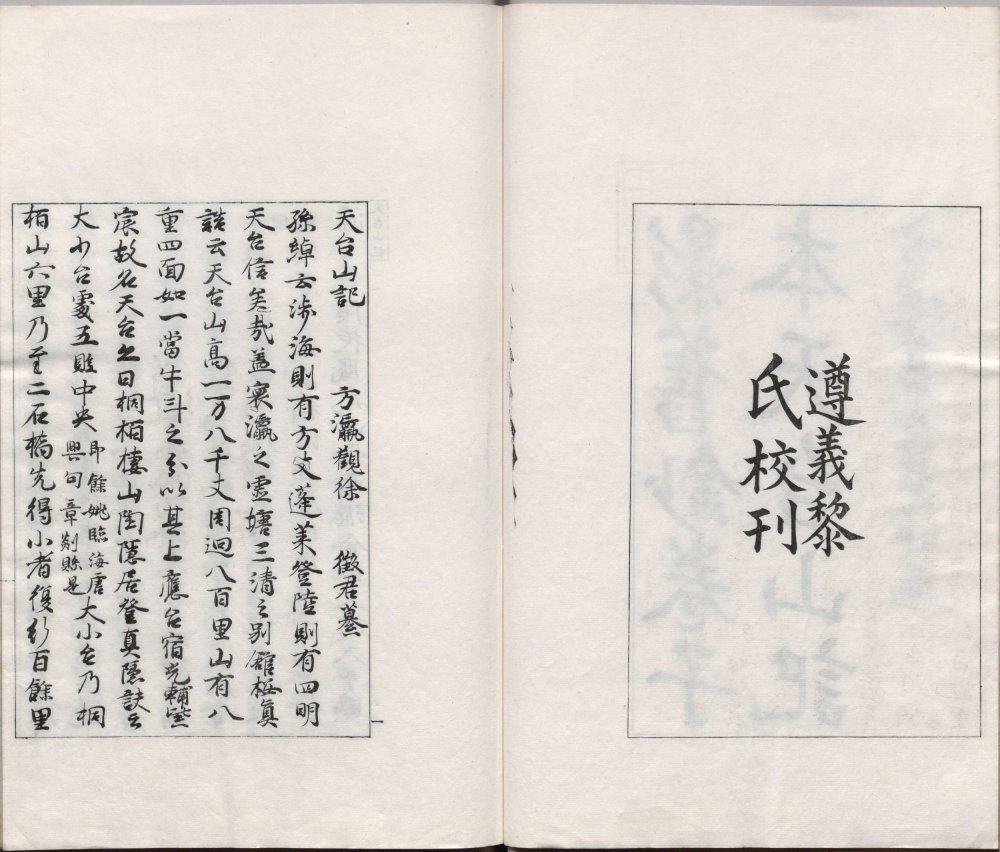 遵義黎
氏校刊
天台山記
方瀛觀徐 徵君纂
孫綽云涉海則有方丈蓬萊登陸則有四明
天台信美哉盖寰瀛之靈墟三清之别舘極真
誥云天台山高一万八千丈周迴八百里山有八
重四面如一當牛斗之分以其上應台宿光輔紫
宸故名天台亦曰桐栢棲山陶隱居登真隱訣云
大小台處五縣中央
即餘姚臨海唐
興句章剡縣是
大小台乃桐
栢山六里乃至二石橋先得小者復行百餘里